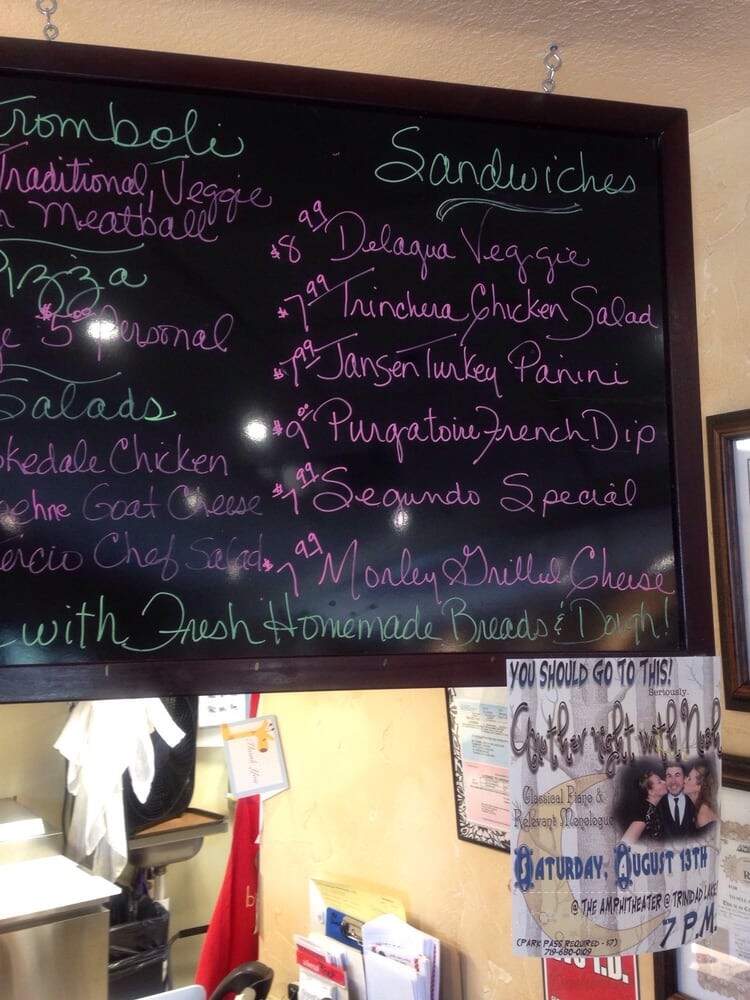 Tromboli
Traditional, Veggie
Meatball
Pizza
$5.00 Personal
Salads
Chicken
Goat Cheese
Chef Salad
Sandwiches
$8.99 Delaqua Veggie
$7.99 Trinchera Chicken Salad
$7.99 Jansen Turkey Panini
$9.00 Purgatoire French Dip
$7.99 Segundo Special
$7.99 Morley Grilled Cheese
with Fresh Homemade Breads & Dough!
Thank You
YOU SHOULD GO TO THIS!
Seriously.
Another night with
Classical Piano &
Relevant Monologue
SATURDAY, AUGUST 13TH
@ THE AMPHITEATER @ TRINIDAD LAKE
7 P.M.
(PARK PASS REQUIRED - $7)
719-680-0109